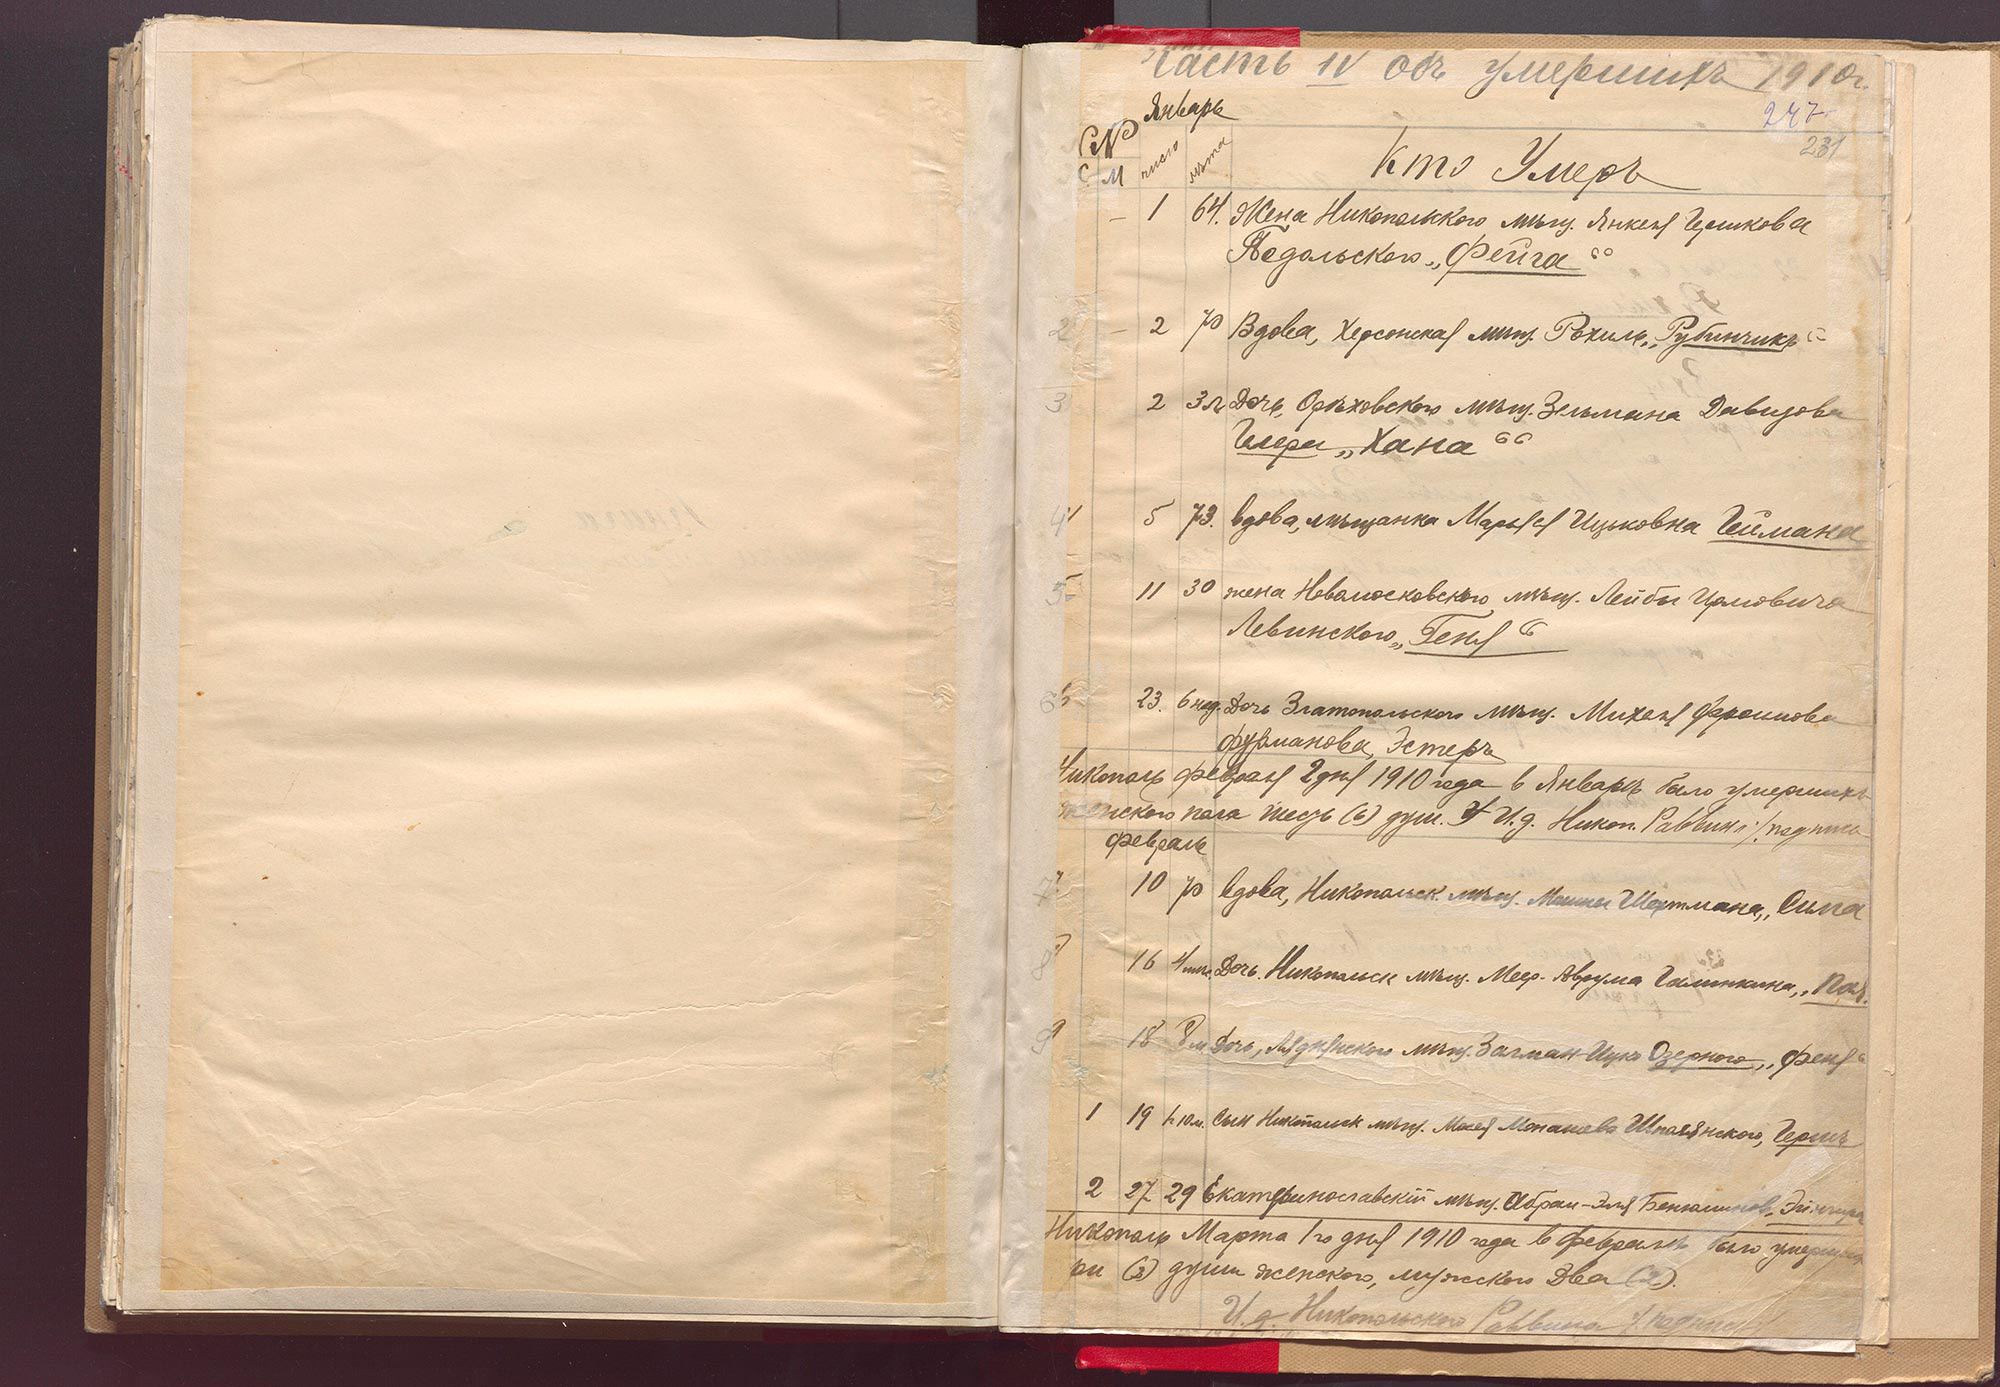 Часть IV объ умершихъ 1910г.
247
Январь
231
№ число лѣта Кто Умеръ
С М
– 1 64. Жена Никопольского мѣщ. Янкеля Гершкова
Подольского „Фейга“
2 – 2 70 Вдова, Херсонская мѣщ. Рохиль „Рубинчикъ“
3 2 3 л. Дочь, Орѣховского мѣщ. Зельмана Давидова
„Хана“
4 5 73. вдова, мѣщанка Марья Ицковна Геймана
5 11 30 жена Новомосковского мѣщ. Лейбы
Левинского „Геня“
6 23. 6 нед. Дочь Златопольского мѣщ. Михеля Фроимова
Фурманова, Эстеръ
Никополь февраля 2 дня 1910 года в Январѣ было умершихъ
женского пола шесть (6) душ. И.д. Никоп. Раввин /подпись
февраль
7 10 70 вдова, Никопольск. мѣщ. Мошки Шехтмана, „Сима
8 16 4 Дочь. Никопольск мѣщ. Меер-Аврума Галинкина, „
9 18 8 м. Дочь, мѣщ. Залман-Ицко Озерного, „Феня“
1 19 10 м. Сын Никопольск мѣщ. Шполянского, Гершъ
2 27 29 Екатеринославскій мѣщ. Абрам-Эля Бенюминов,
Никополь Марта 1го дня 1910 года в февралѣ было умерших
три (3) души женского, мужского Два (2).
И.д. Никопольского Раввина /подпись/